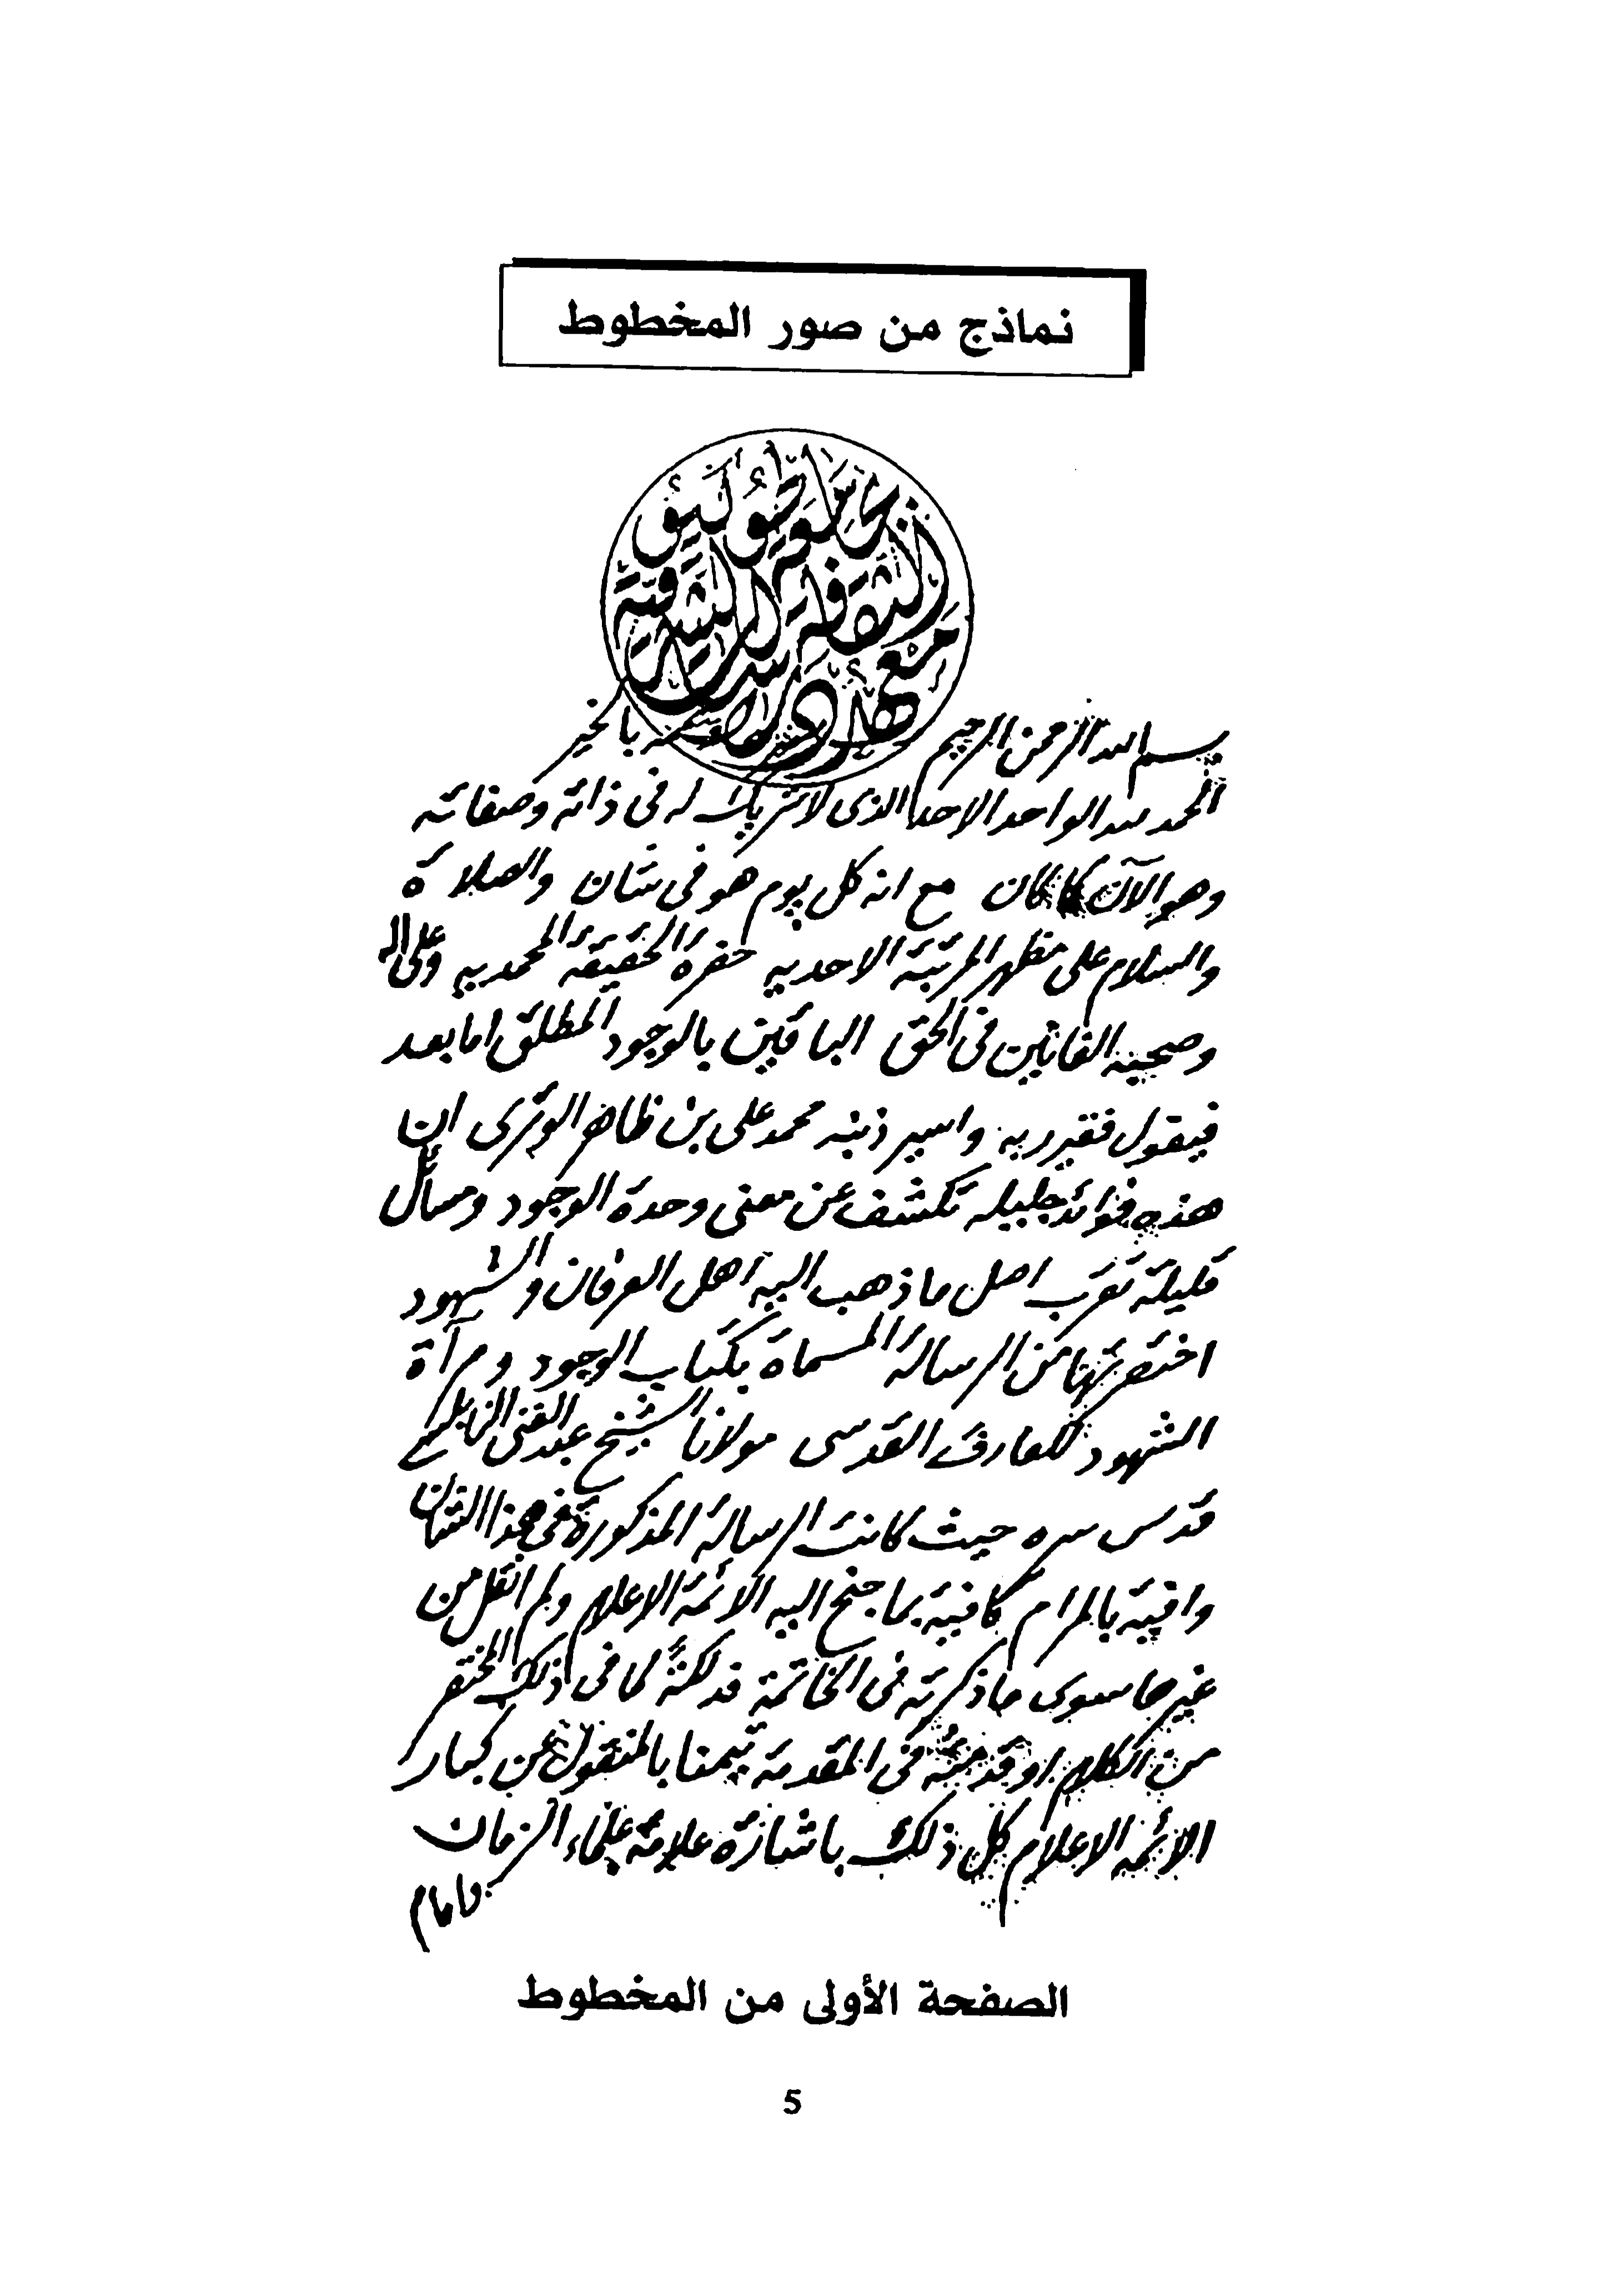 نماذج من صور المخطوط
معهد الدراسات
الثقافة الشرقية
بسم الله الرحمن الرحيم بالخير
الحمد لله الواحد الاحد الذى لا شريك له فى ذاته وصفاته
وهو الآن كما كان مع انه كل يوم هو فى شان والصلاة
والسلام على مظهر المرتبة الاحديه حضرة الحقيقة المحمديه وعلى اله
وصحبه الفانين فى الحق الباقين بالوجود المطلق اما بعد
فيقول فقير ربه واسير ذنبه محمد على بن ظاهر الوترى ان
هذه فوائد جليله تكشف عن معنى وحدة الوجود ومسائل
قليلة تقرب اصل ما ذهب اليه اهل العرفان والشهود
اختصرتها من الرسالة المسماة بكتاب الوجود ومرآة
الشهود للعارف القدسى مولانا الشيخ عبد الغنى النابلسى
قدس سره حيث كانت الرسالة المذكورة فى هذا الشان
وافية بالمرام كافية بما جنح اليه الائمة الاعلام ولم انقل من
غيرها سوى ما ذكرته فى الخاتمة فذلكة لما فى ذلك المختصر
من الكلام او قدمته فى المقدمة تيمنا بالمنقول عن كبار
الائمه الاعلام كل ذلك باشارة علامة علماء الزمان
وامام
الصفحة الأولى من المخطوط
5